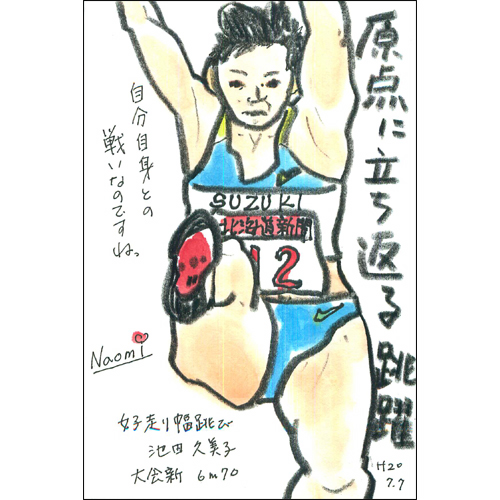 原点に立ち返る跳躍
自分自身との
戦いなのですね。
SUZUKI
北海道新聞
12
Naomi
女子走り幅跳び
池田久美子
大会新 6m70
H20
7.7